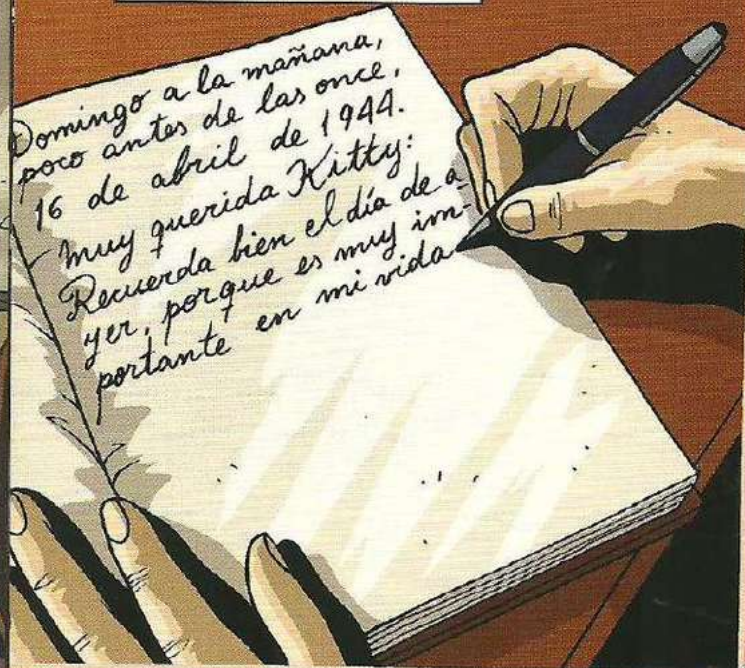 Domingo a la mañana,
poco antes de las once,
16 de abril de 1944.
Muy querida Kitty:
Recuerda bien el día de a
yer, porque es muy im-
portante en mi vida